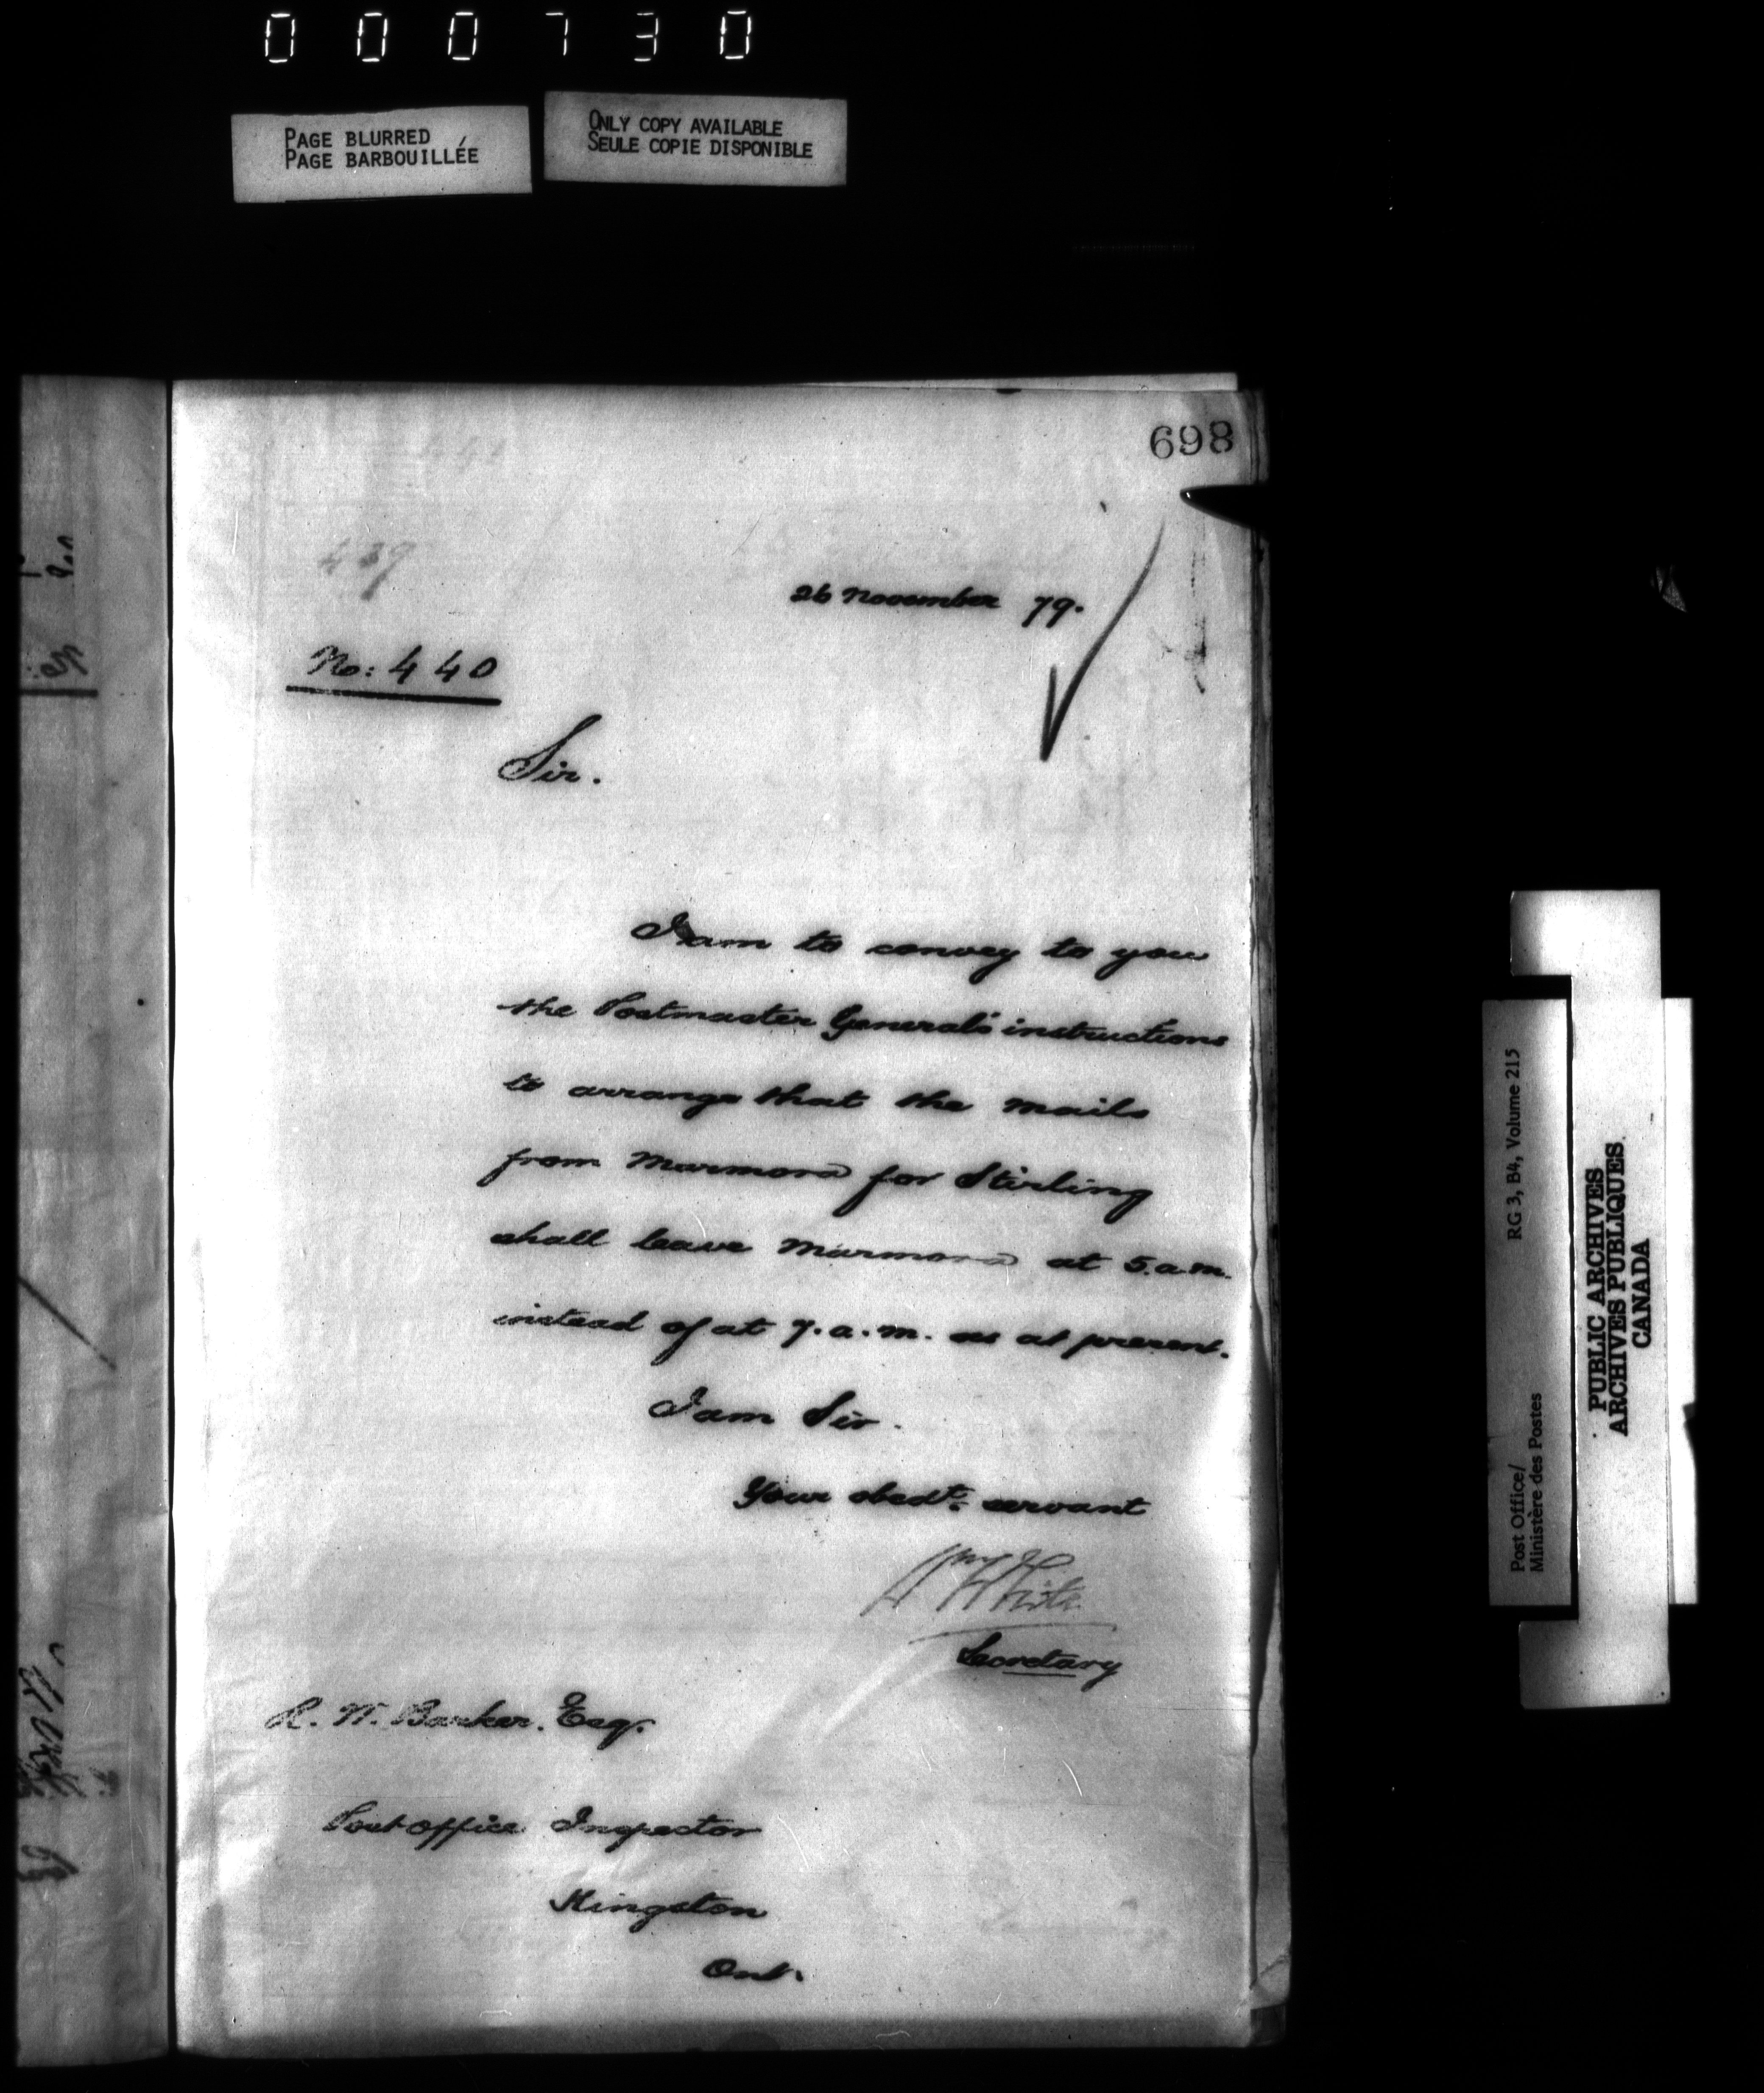 000730
PAGE BLURRED
PAGE BARBOUILLÉE
ONLY COPY AVAILABLE
SEULE COPIE DISPONIBLE
698
439
26 November 79.
No: 440
Sir.
I am to convey to you
the Postmaster General's instructions
to arrange that the mails
from Marmora for Stirling
shall leave Marmora at 5.a.m.
instead of at 7.a.m. as at present.
I am Sir.
Your obedt. servant
Wm White
Secretary
R. W. Barker. Esq.
Post office Inspector
Kingston
Ont.
Post Office/ RG 3, B4, Volume 215
Ministère des Postes
PUBLIC ARCHIVES
ARCHIVES PUBLIQUES
CANADA